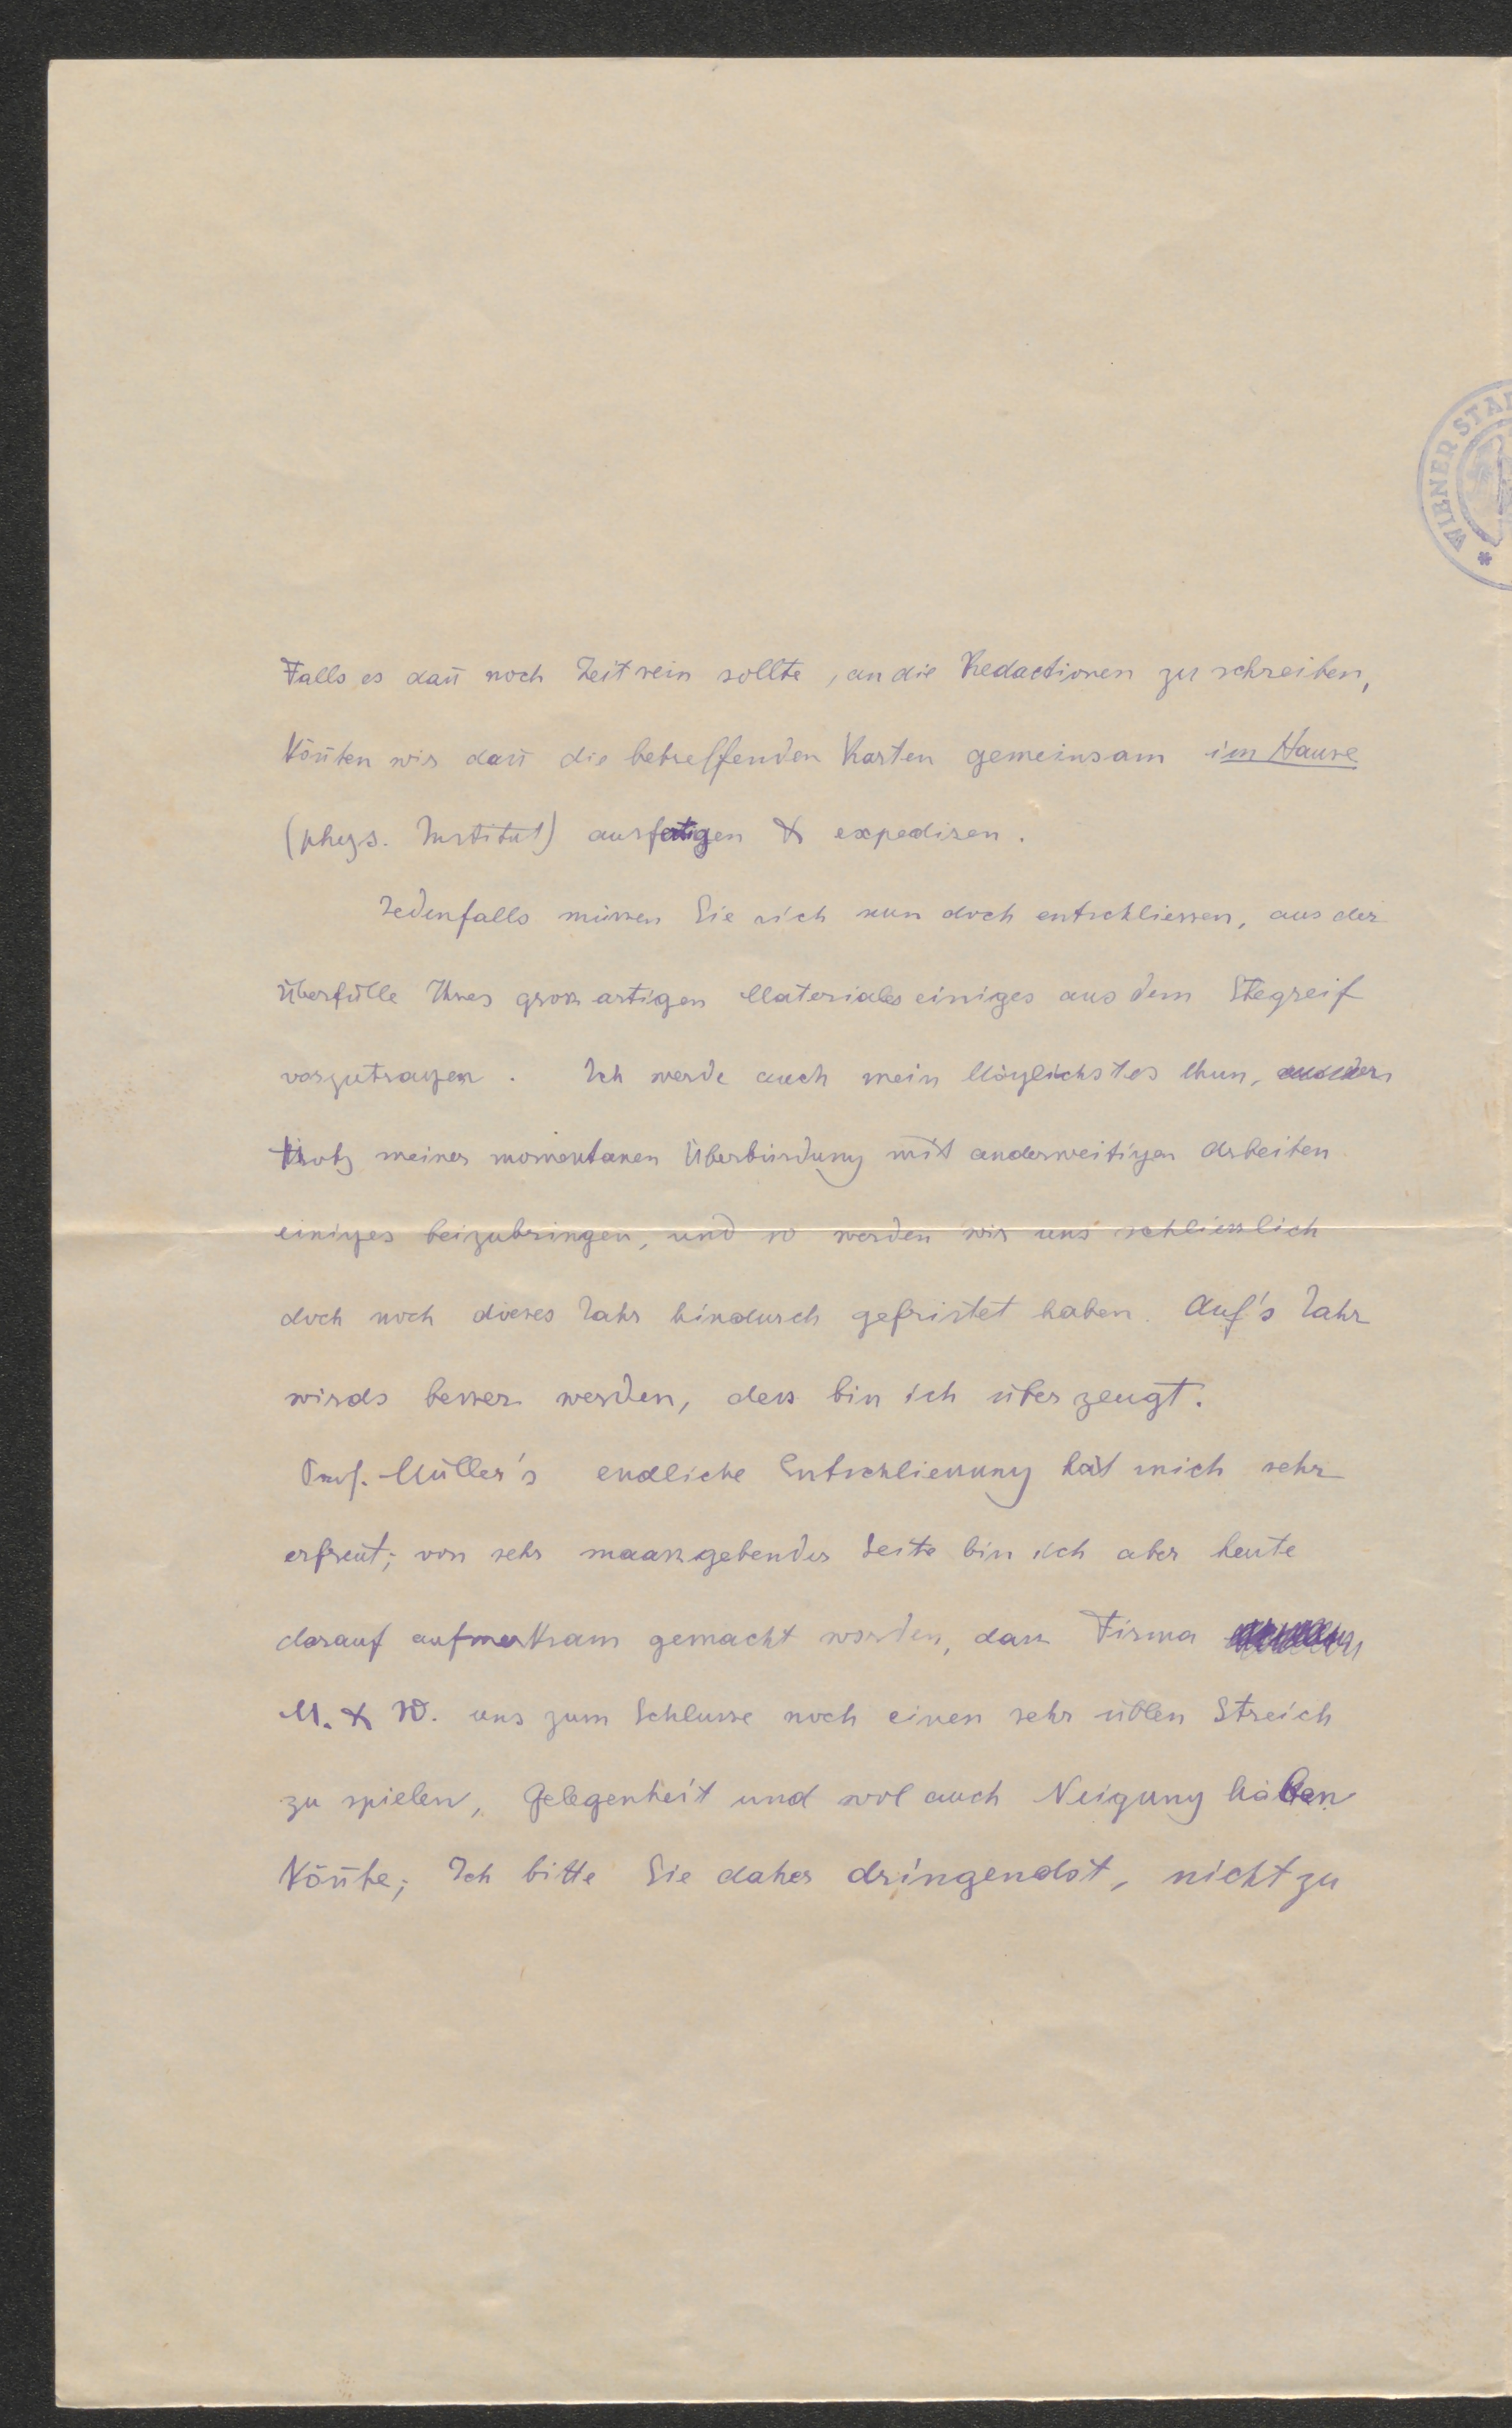 Falls es dañ noch Zeit sein sollte, an die Redactionen zu schreiben,
köñten wir dañ die betreffenden Karten gemeinsam im Hause
(phys. Institut) ausfertigen & expediren.
Jedenfalls müssen Sie sich nun doch entschliessen, aus der
Überfülle Ihres grossartigen Materiales einiges aus dem Stegreif
vorzutragen. Ich werde auch mein Möglichstes thun,
trotz meiner momentanen Überbürdung mit anderweitigen Arbeiten
einiges beizubringen, und so werden wir uns schliesslich
doch noch dieses Jahr hindurch gefristet haben. Auf's Jahr
wirds besser werden, dess bin ich überzeugt.
Prof. Müller's endliche Entschliessung hat mich sehr
erfreut; von sehr maassgebender Seite bin ich aber heute
darauf aufmerksam gemacht worden, dass Firma
M. & W. uns zum Schlusse noch einen sehr üblen Streich
zu spielen, Gelegenheit und wol auch Neigung haben
köñte; Ich bitte Sie daher dringendst, nicht zu
WIENER STA